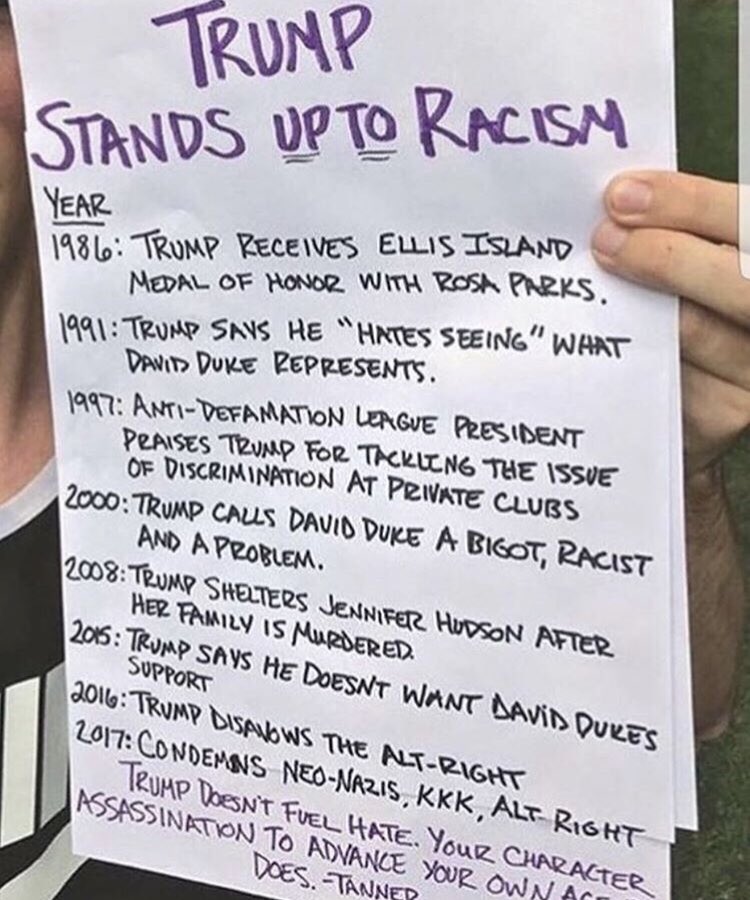 TRUMP
STANDS UP TO RACISM
YEAR
1986: TRUMP RECEIVES ELLIS ISLAND
MEDAL OF HONOR WITH ROSA PARKS.
1991: TRUMP SAYS HE "HATES SEEING" WHAT
DAVID DUKE REPRESENTS.
1997: ANTI-DEFAMATION LEAGUE PRESIDENT
PRAISES TRUMP FOR TACKLING THE ISSUE
OF DISCRIMINATION AT PRIVATE CLUBS
2000: TRUMP CALLS DAVID DUKE A BIGOT, RACIST
AND A PROBLEM.
2008: TRUMP SHELTERS JENNIFER HUDSON AFTER
HER FAMILY IS MURDERED.
2015: TRUMP SAYS HE DOESNT WANT DAVID DUKES
SUPPORT
2016: TRUMP DISAVOWS THE ALT-RIGHT
2017: CONDEMNS NEO-NAZIS, KKK, ALT RIGHT
TRUMP DOESN'T FUEL HATE. YOUR CHARACTER
ASSASSINATION TO ADVANCE YOUR OWN
DOES. -TANNER